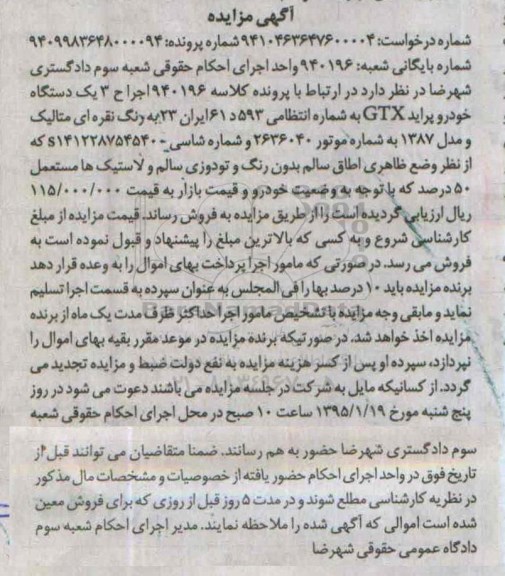 آگهی مزایده
شماره درخواست: ۹۴۱۰۴۶۳۶۴۷۶۰۰۰۰۴ شماره پرونده: ۹۴۰۹۹۸۳۶۴۸۰۰۰۰۹۴
شماره بایگانی شعبه: ۹۴۰۱۹۶ واحد اجرای احکام حقوقی شعبه سوم دادگستری
شهرضا در نظر دارد در ارتباط با پرونده کلاسه ۹۴۰۱۹۶ اجرا ح ۳ یک دستگاه
خودرو پراید GTX به شماره انتظامی ۵۹۳ د ۶۱ ایران ۲۳ به رنگ نقره ای متالیک
و مدل ۱۳۸۷ به شماره موتور ۲۶۳۶۰۴۰ و شماره شاسی- s۱۴۱۲۲۸۷۵۴۵۴۰ که
از نظر وضع ظاهری اطاق سالم بدون رنگ و تودوزی سالم و لاستیک ها مستعمل
۵۰ درصد که با توجه به وضعیت خودرو و قیمت بازار به قیمت ۱۱۵/۰۰۰/۰۰۰
ریال ارزیابی گردیده است را از طریق مزایده به فروش رساند. قیمت مزایده از مبلغ
کارشناسی شروع و به کسی که بالاترین مبلغ را پیشنهاد و قبول نموده است به
فروش می رسد. در صورتی که مامور اجرا پرداخت بهای اموال را به وعده قرار دهد
برنده مزایده باید ۱۰ درصد بها را فی المجلس به عنوان سپرده به قسمت اجرا تسلیم
نماید و مابقی وجه مزایده با تشخیص مامور اجرا حداکثر ظرف مدت یک ماه از برنده
مزایده اخذ خواهد شد. در صورتیکه برنده مزایده در موعد مقرر بقیه بهای اموال را
نپردازد، سپرده او پس از کسر هزینه مزایده به نفع دولت ضبط و مزایده تجدید می
گردد. از کسانیکه مایل به شرکت در جلسه مزایده می باشند دعوت می شود در روز
پنج شنبه مورخ ۱۳۹۵/۱/۱۹ ساعت ۱۰ صبح در محل اجرای احکام حقوقی شعبه
سوم دادگستری شهرضا حضور به هم رسانند. ضمنا متقاضیان می توانند قبل از
تاریخ فوق در واحد اجرای احکام حضور یافته از خصوصیات و مشخصات مال مذکور
در نظریه کارشناسی مطلع شوند و در مدت ۵ روز قبل از روزی که برای فروش معین
شده است اموالی که آگهی شده را ملاحظه نمایند. مدیر اجرای احکام شعبه سوم
دادگاه عمومی حقوقی شهرضا